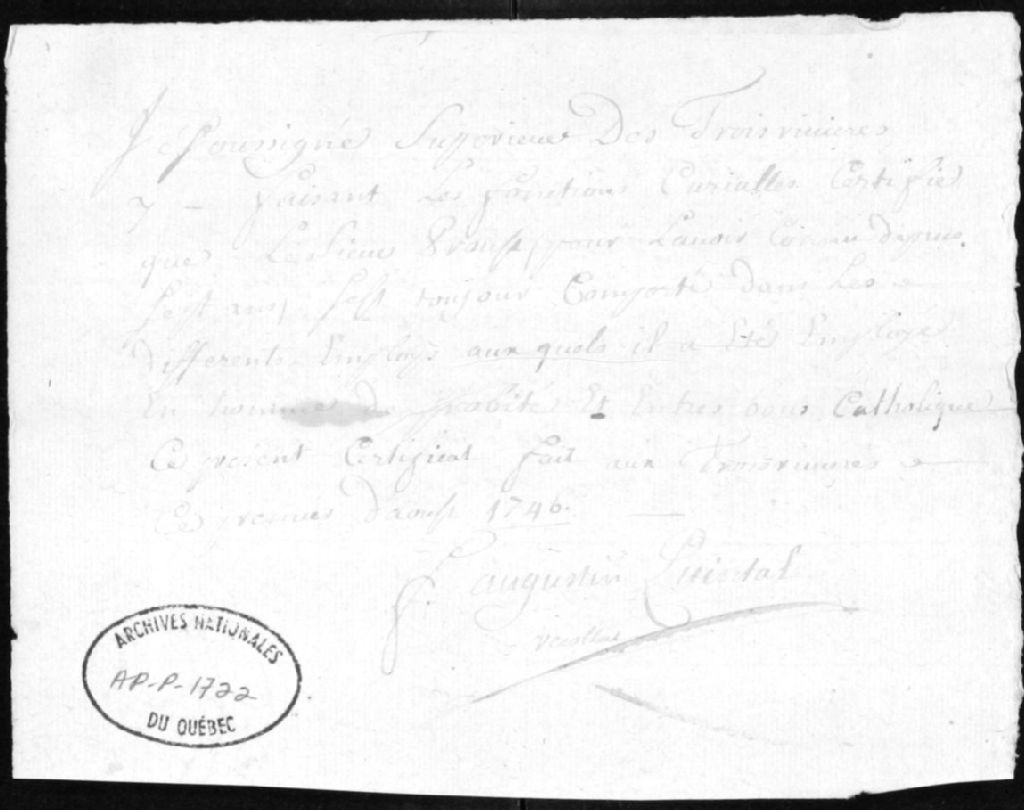 Je Soussigné Superieur Des Troisrivieres
y - faisant Les fonctions Curialles Certifie
que Le Sieur pour Lavoir Connu depuis
Sept ans, Sest toujour Comporté dans Les
differents Employs aux quels il a Eté Employé
En homme de probité Et Catholique
Ce present Certificat fait aux Troisrivieres
Ce premier d'aoust 1746.
f. augustin Quintal
recollet
ARCHIVES NATIONALES
AP-P-1722
DU QUÉBEC